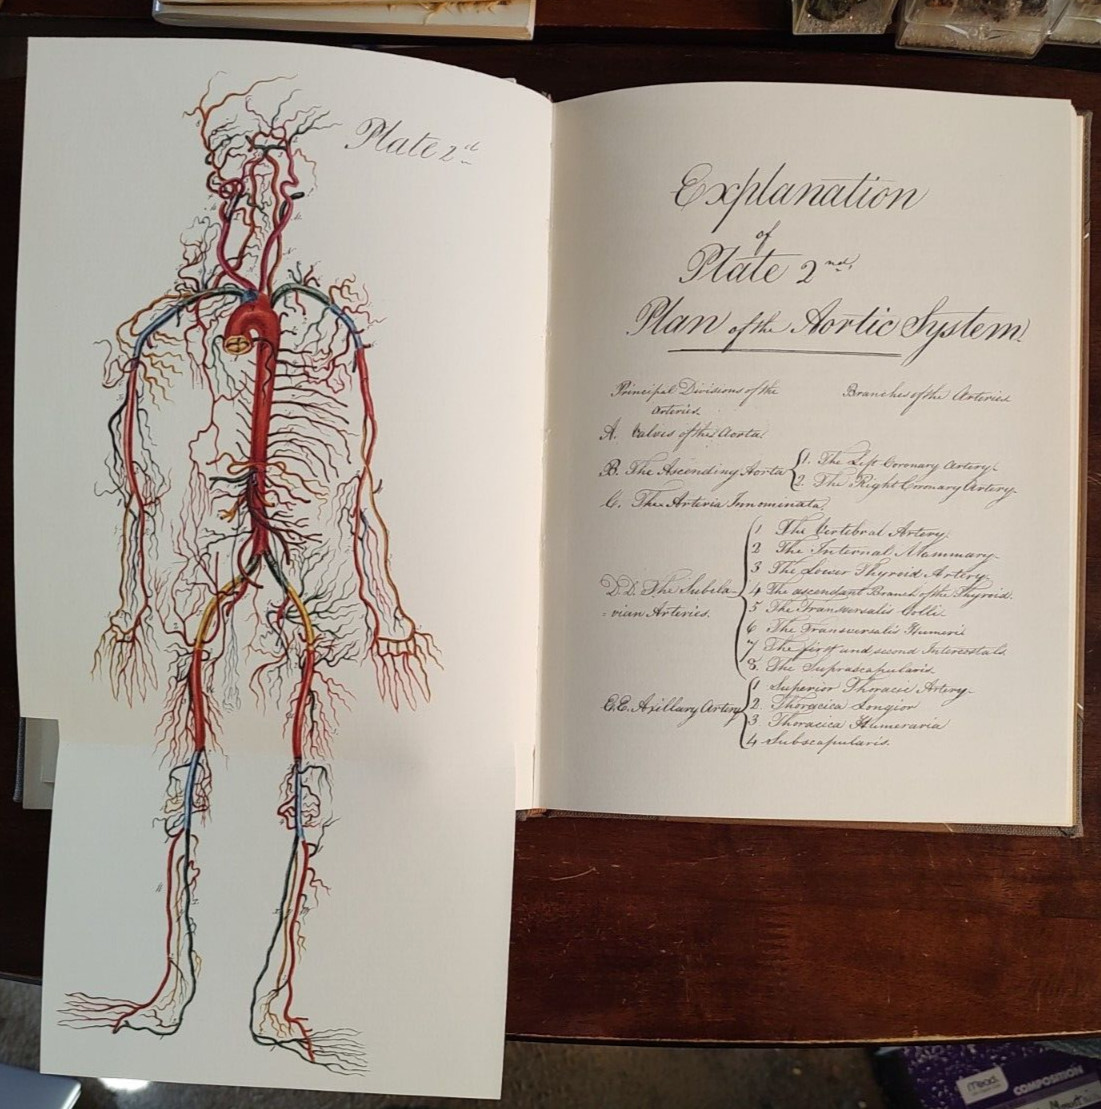 Plate 2d
Explanation
of
Plate 2nd.
Plan of the Aortic System.
Principal Divisions of the
Arteries.
Branches of the Arteries
A. Valves of the Aorta.
B. The Ascending Aorta
1. The Left Coronary Artery.
2. The Right Coronary Artery.
C. The Arteria Innominata.
D.D. The Subcla-
-vian Arteries.
1 The Vertebral Artery.
2 The Internal Mammary.
3 The Lower Thyroid Artery.
4 The ascendant Branch of the Thyroid.
5 The Transversalis Colli.
6 The Transversalis Humeri
7 The first and second Intercostals
8. The Suprascapularis.
E.E. Axillary Artery
1 Superior Thoracic Artery.
2. Thoracica Longior
3 Thoracica Humeraria
4 Subscapularis.
Mead
COMPOSITION